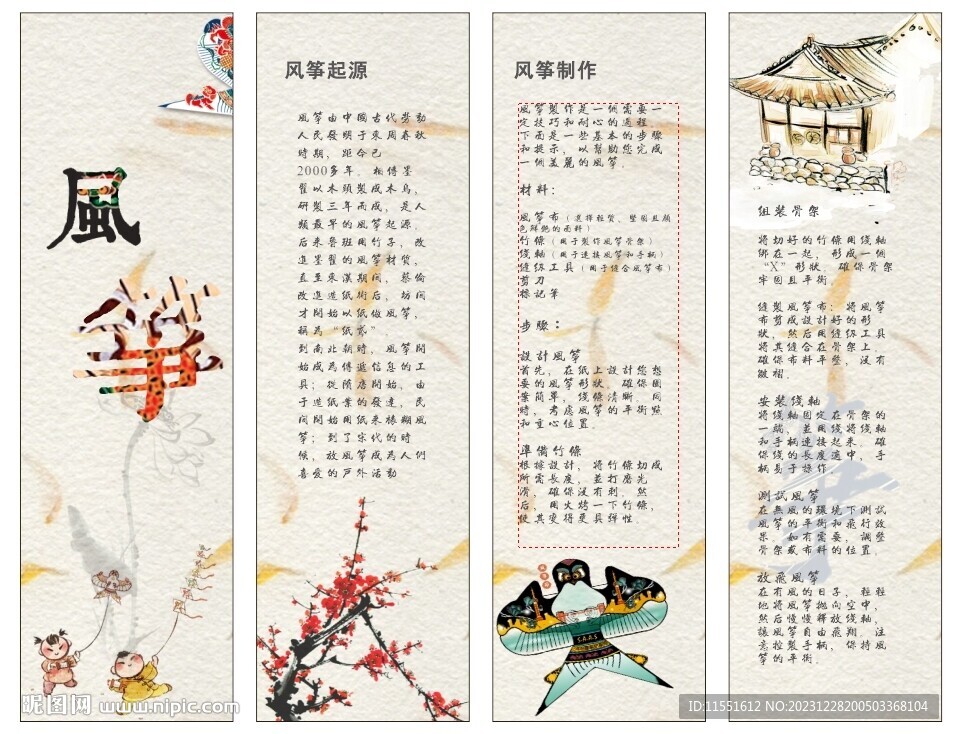 風
筝
风筝起源
風筝由中國古代勞動
人民發明于東周春秋
時期，距今已
2000多年。相傳墨
翟以木頭製成木鳥，
研製三年而成，是人
類最早的風筝起源。
后來魯班用竹子，改
進墨翟的風筝材質，
直至東漢期間，蔡倫
改進造紙術后，坊間
才開始以紙做風筝，
稱為“紙鳶”
到南北朝時，風筝開
始成為傳遞信息的工
具；從隋唐開始，由
于造紙業的發達，民
間開始用紙來裱糊風
筝；到了宋代的時
候，放風筝成為人們
喜愛的戶外活動
风筝制作
風筝製作是一個需要一
定技巧和耐心的過程，
下面是一些基本的步驟
和提示，以幫助您完成
一個美麗的風筝。
材料：
風筝布（選擇輕質、堅固且顏
色鮮艷的面料）
竹條（用于製作風筝骨架）
线軸（用于連接風筝和手柄）
缝纫工具（用于缝合風筝布）
剪刀
標記筆
步驟：
設計風筝
首先，在紙上設計您想
要的風筝形狀。確保圖
案簡單，线條清晰。同
時，考慮風筝的平衡點
和重心位置。
準備竹條
根據設計，將竹條切成
所需長度，並打磨光
滑，確保沒有刺。然
后，用火烤一下竹條，
使其變得更具彈性
S.A.R.S
組裝骨架
將切好的竹條用线軸
綁在一起，形成一個
“X”形狀。確保骨架
牢固且平衡。
缝製風筝布：將風筝
布剪成設計好的形
狀，然后用缝纫工具
將其缝合在骨架上。
確保布料平整，沒有
皺褶。
安裝线軸
將线軸固定在骨架的
一端，並用线將线軸
和手柄連接起來。確
保线的長度適中，手
柄易于操作
測試風筝
在無風的環境下測試
風筝的平衡和飛行效
果。如有需要，調整
骨架或布料的位置。
放飛風筝
在有風的日子，輕輕
地將風筝拋向空中，
然后慢慢釋放线軸，
讓風筝自由飛翔。注
意控製手柄，保持風
筝的平衡。
昵图网 www.nipic.com
ID:11551612 NO:20231228200503368104